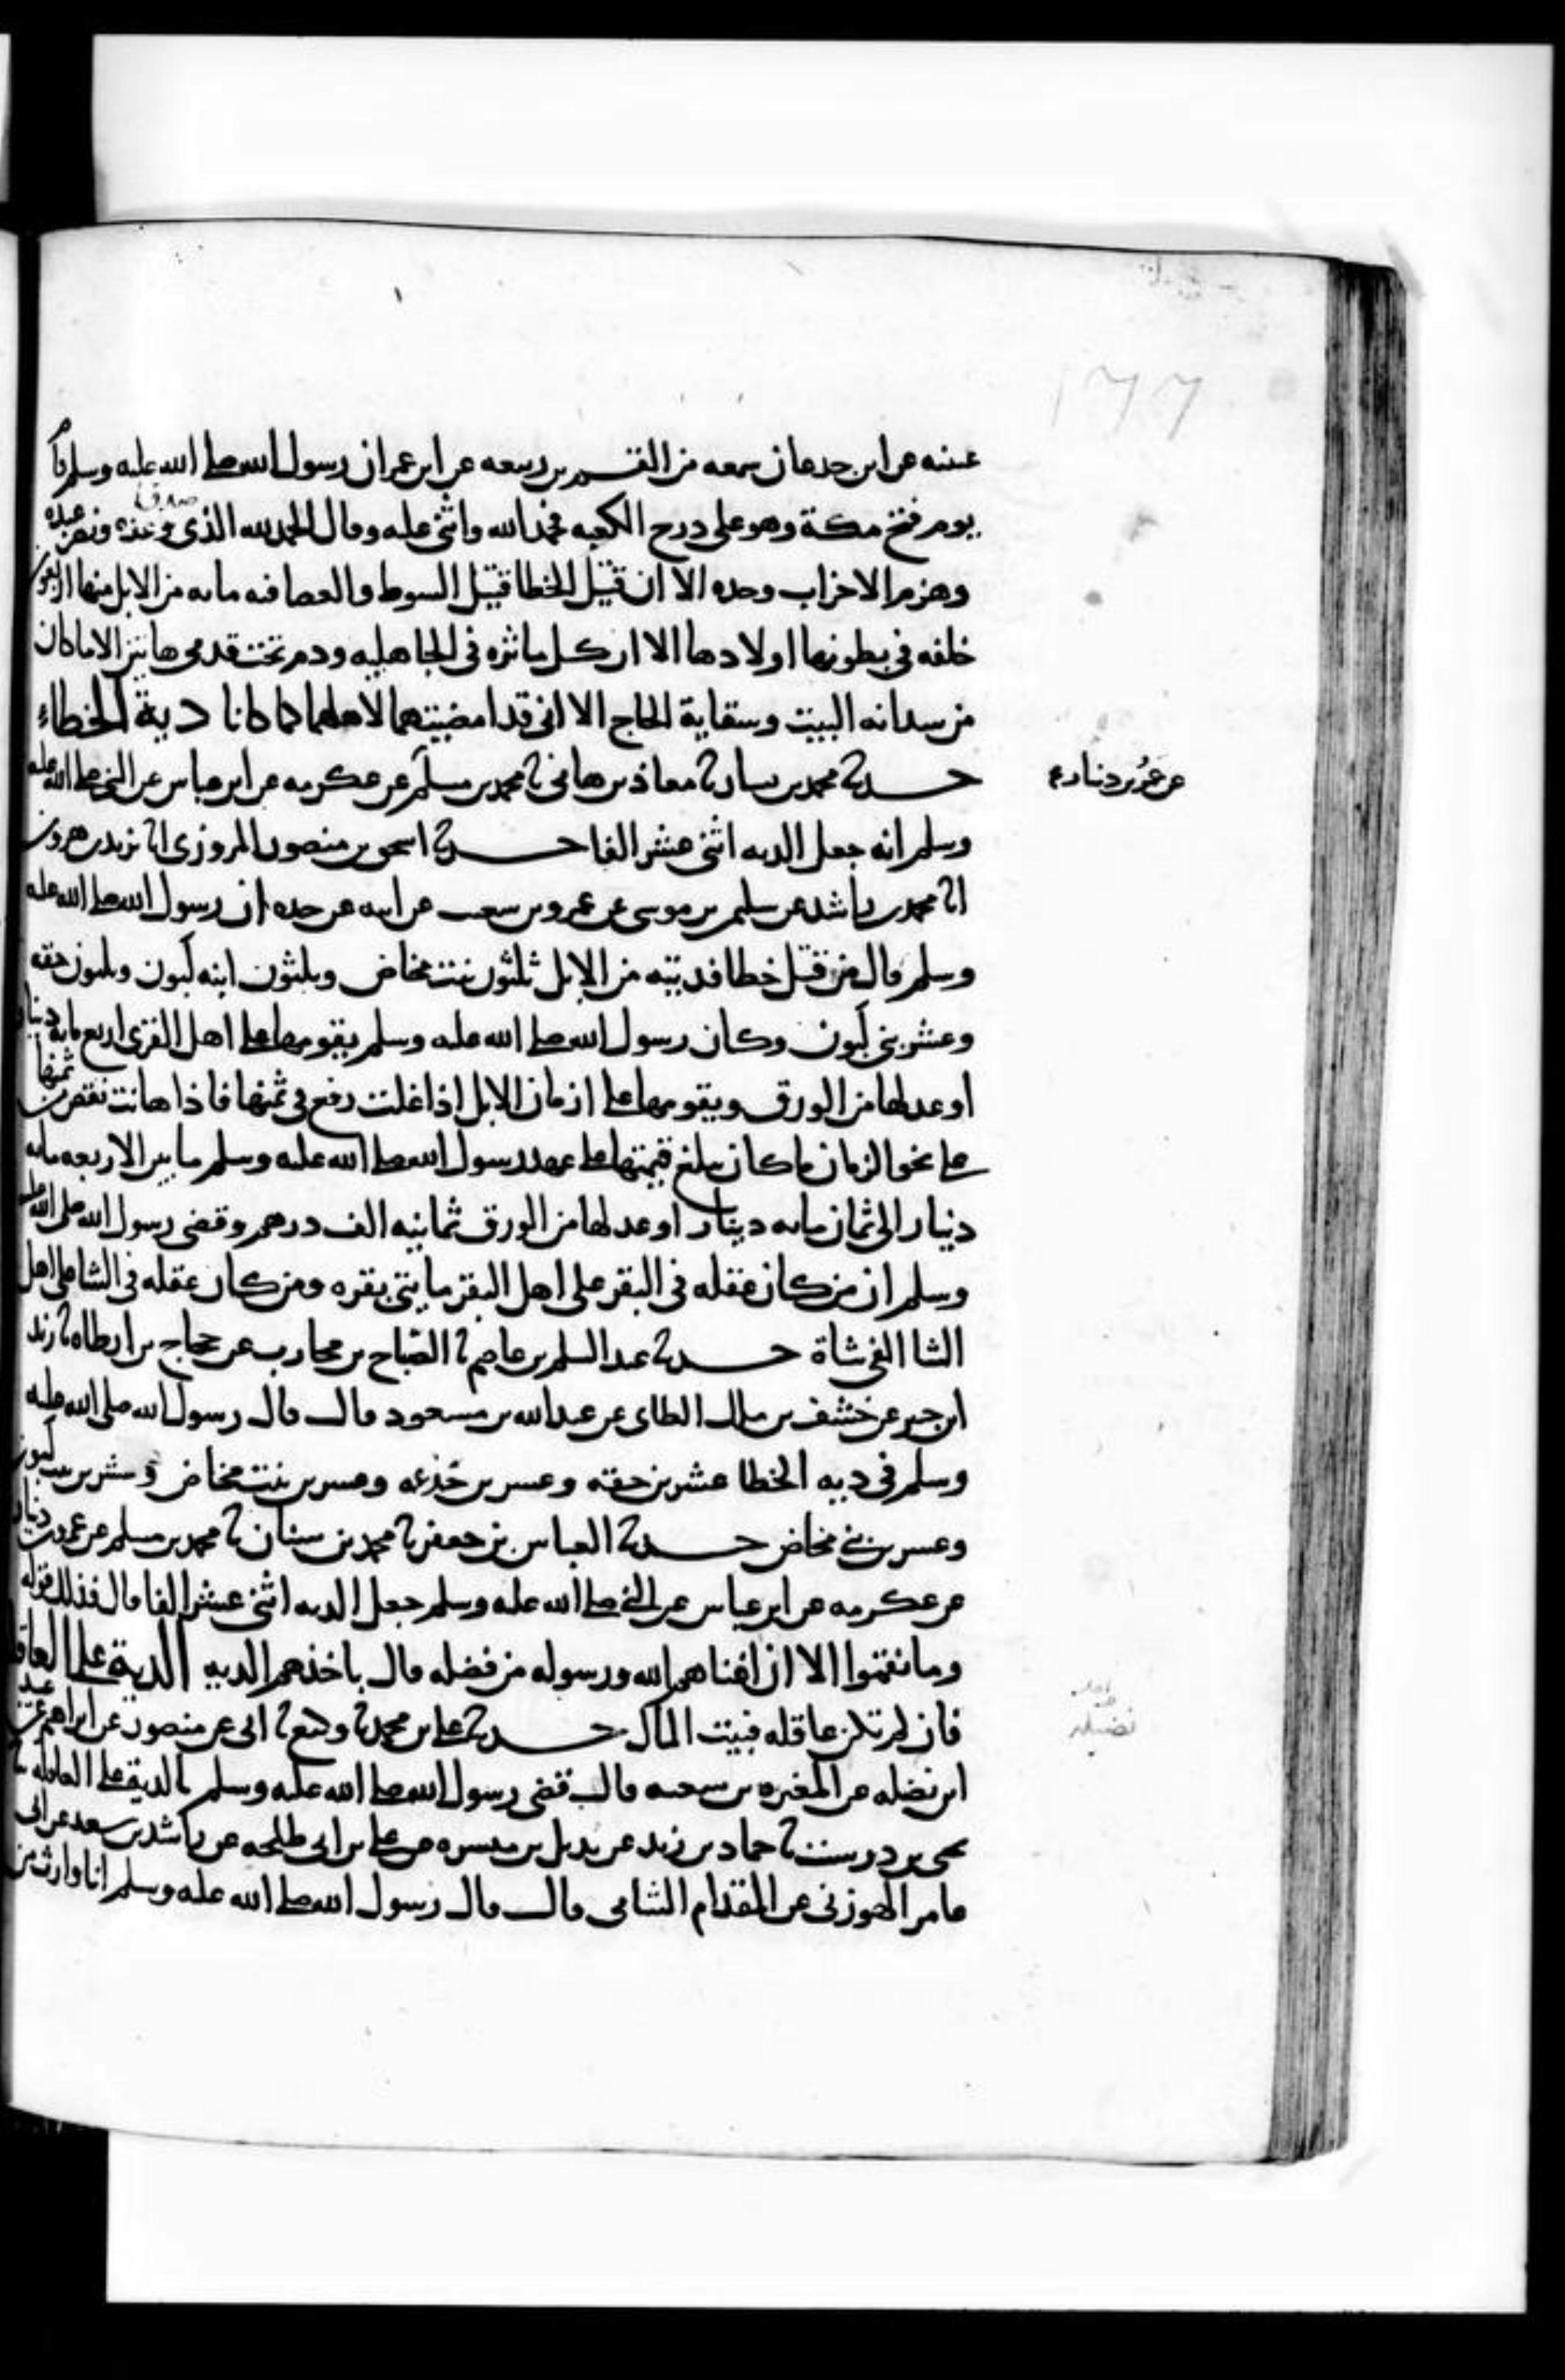 ١٦٦
عيينه عن ابن جدعان سمعه من القسم بن ربيعه عن ابن عمر ان رسول الله صلى الله عليه وسلم قام
يوم فتح مكة وهو على درج الكعبه فحمد الله واثنى عليه وقال الحمد لله الذي صدق وعده ونصر عبده
وهزم الاحزاب وحده الا ان قتيل الخطا قتيل السوط والعصا فيه مايه من الابل منها اربعون
خلفه في بطونها اولادها الا ان كل ماثره في الجاهليه ودم تحت قدمي هاتين الا ما كان
من سدانه البيت وسقاية الحاج الا اني قد امضيتهما لاهلهما كما كانا دية الخطاء
حدثنا محمد بن بشار ثنا معاذ بن هاني ثنا محمد بن مسلم عن عكرمه عن ابن عباس عن النبي صلى الله عليه
عن عمرو بن دينار
وسلم انه جعل الديه اثني عشر الفا حدثنا اسحق بن منصور المروزي انا يزيد بن هرون
انا محمد بن راشد عن سليمن بن موسى عن عمرو بن شعيب عن ابيه عن جده ان رسول الله صلى الله عليه
وسلم قال من قتل خطا فديته من الابل ثلثون بنت مخاض وثلثون ابنه لبون وثلثون حقه
وعشر بني لبون وكان رسول الله صلى الله عليه وسلم يقومها على اهل القرى اربع مايه دينار
او عدلها من الورق ويقومها على ازمان الابل اذا غلت رفع في ثمنها فاذا هانت نقص من ثمنها
على نحو الزمان ما كان فبلغ قيمتها على عهد رسول الله صلى الله عليه وسلم ما بين الاربعه مايه
دينار الى ثمان مايه دينار او عدلها من الورق ثمانيه الف درهم وقضى رسول الله صلى الله عليه
وسلم ان من كان عقله في البقر على اهل البقر مايتي بقره ومن كان عقله في الشا على اهل
الشا الفي شاة حدثنا عبد السلم بن عاصم ثنا الصباح بن محارب عن حجاج بن ارطاه ثنا زيد
ابن جبير عن خشف بن ملك الطاي عن عبد الله بن مسعود قال قال رسول الله صلى الله عليه
وسلم في ديه الخطا عشرين حقه وعشرين جذعه وعشرين بنت مخاض وعشرين بنت لبون
وعشرين بني مخاض حدثنا العباس بن جعفر ثنا محمد بن سنان ثنا محمد بن مسلم عن عمرو بن دينار
عن عكرمه عن ابن عباس عن النبي صلى الله عليه وسلم جعل الديه اثني عشر الفا قال فذلك قوله
وما نقموا الا ان اغناهم الله ورسوله من فضله قال باخذهم الديه الدية على العاقلة
فان لم تكن عاقله فبيت المال حدثنا علي بن محمد ثنا وكيع ثنا ابي عن منصور عن ابراهيم عن عبيد
ابن نضله عن المغيره بن شعبه قال قضى رسول الله صلى الله عليه وسلم بالدية على العاقله ثنا
نضيله
يحيى بن درست ثنا حماد بن زيد عن بديل بن ميسره عن علي بن ابي طلحه عن راشد بن سعد عن ابي
عامر الهوزني عن المقدام الشامي قال قال رسول الله صلى الله عليه وسلم انا وارث من